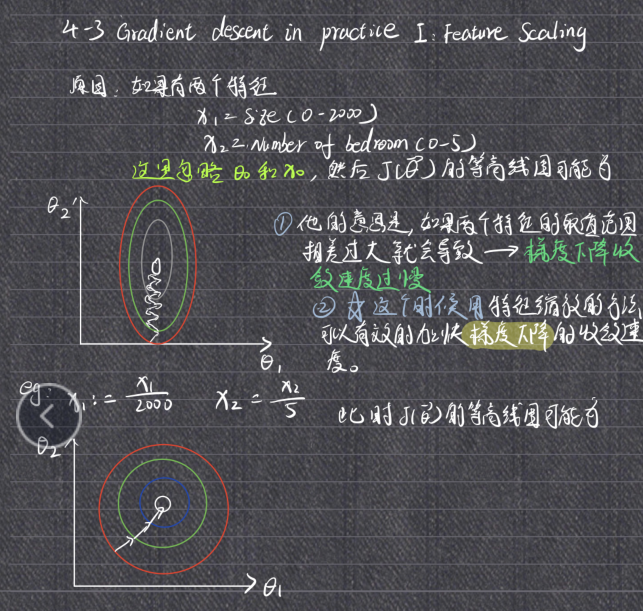 4-3 Gradient descent in practice I: Feature Scaling
原因: 如果有两个特征
x₁ = size (0-2000)
x₂ = Number of bedroom (0-5)
这里忽略 θ₀ 和 x₀, 然后 J(θ⃗) 的等高线图可能为
θ₂
① 他的意思是, 如果两个特征的取值范围
相差过大就会导致 → 梯度下降收
敛速度过慢
② 这个时候使用特征缩放的方法,
可以有效的加快梯度下降的收敛速
度。
θ₁
eg: x₁ := x₁/2000 x₂ = x₂/5
此时 J(θ⃗) 的等高线图可能为
θ₂
θ₁